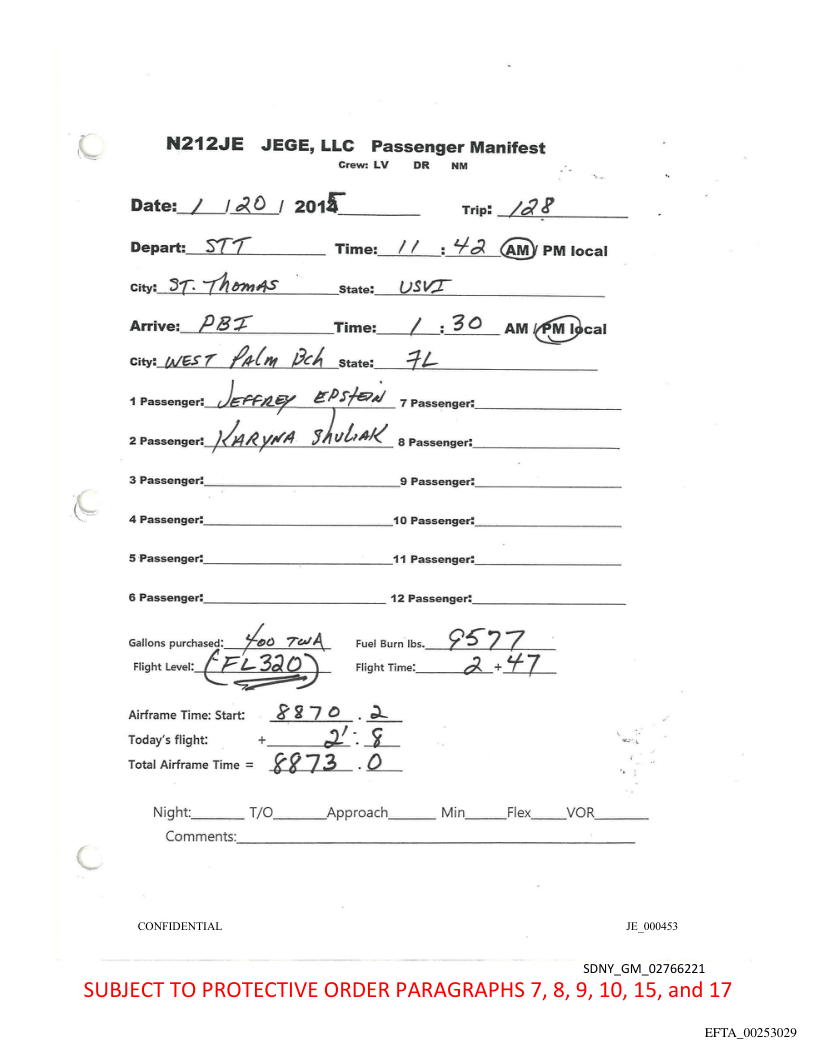 N212JE JEGE, LLC Passenger Manifest
Crew: LV DR NM
Date: 1 / 20 / 2015 Trip: 128
Depart: STT Time: 11 : 42 AM/ PM local
City: ST. THOMAS State: USVI
Arrive: PBI Time: 1 : 30 AM / PM local
City: WEST PALM BCH State: FL
1 Passenger: JEFFREY EPSTEIN 7 Passenger:
2 Passenger: KARYNA SHULIAK 8 Passenger:
3 Passenger: 9 Passenger:
4 Passenger: 10 Passenger:
5 Passenger: 11 Passenger:
6 Passenger: 12 Passenger:
Gallons purchased: 400 TWA Fuel Burn lbs. 9577
Flight Level: (FL320) Flight Time: 2 + 47
Airframe Time: Start: 8870 . 2
Today's flight: + 2 . 8
Total Airframe Time = 8873 . 0
Night: T/O Approach Min Flex VOR
Comments:
CONFIDENTIAL JE_000453
SDNY_GM_02766221
SUBJECT TO PROTECTIVE ORDER PARAGRAPHS 7, 8, 9, 10, 15, and 17
EFTA_00253029